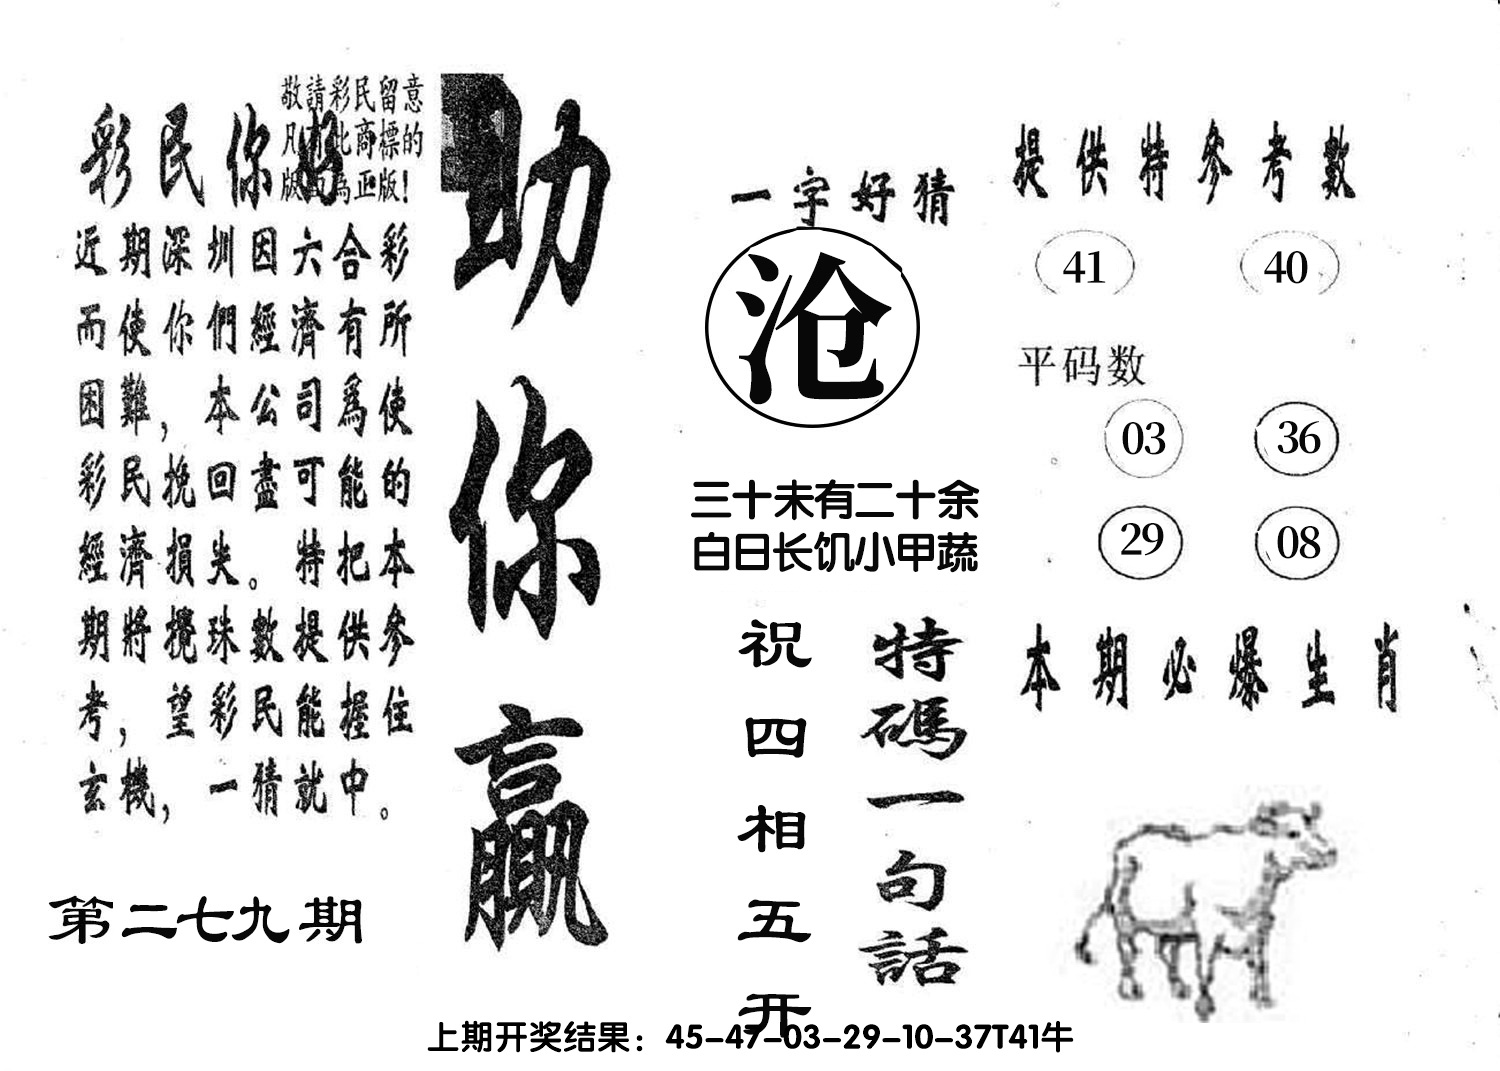 敬請彩民留意
凡有此商標的
版面為正版!
彩民你好
近期深圳因六合彩
而使你們經濟有所
困難，本公司爲使
彩民挽回盡可能的
經濟損失。特把本
期將攪珠數提供參
考，望彩民能握住
玄機，一猜就中。
第二七九期
助你贏
一字好猜
沧
三十未有二十余
白日长饥小甲蔬
特碼一句話
祝四相五开
提供特參考數
41 40
平码数
03 36
29 08
本期必爆生肖
上期开奖结果：45-47-03-29-10-37T41牛